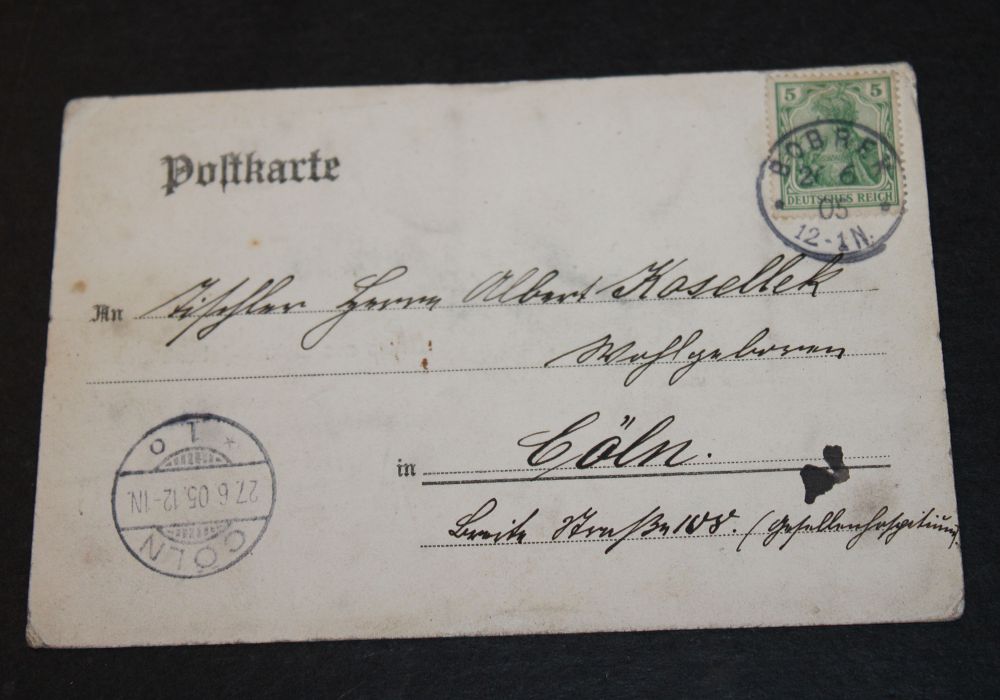 Postkarte
5 5
DEUTSCHES REICH
BOBREK
26 6
05
12-1N.
An Tischler Herrn Albert Kosellek
Wohlgeboren
in Cöln.
Breite Straße 108. (Gesellenhospitium)
CÖLN
27.6.05.12-1N.
* 1 o